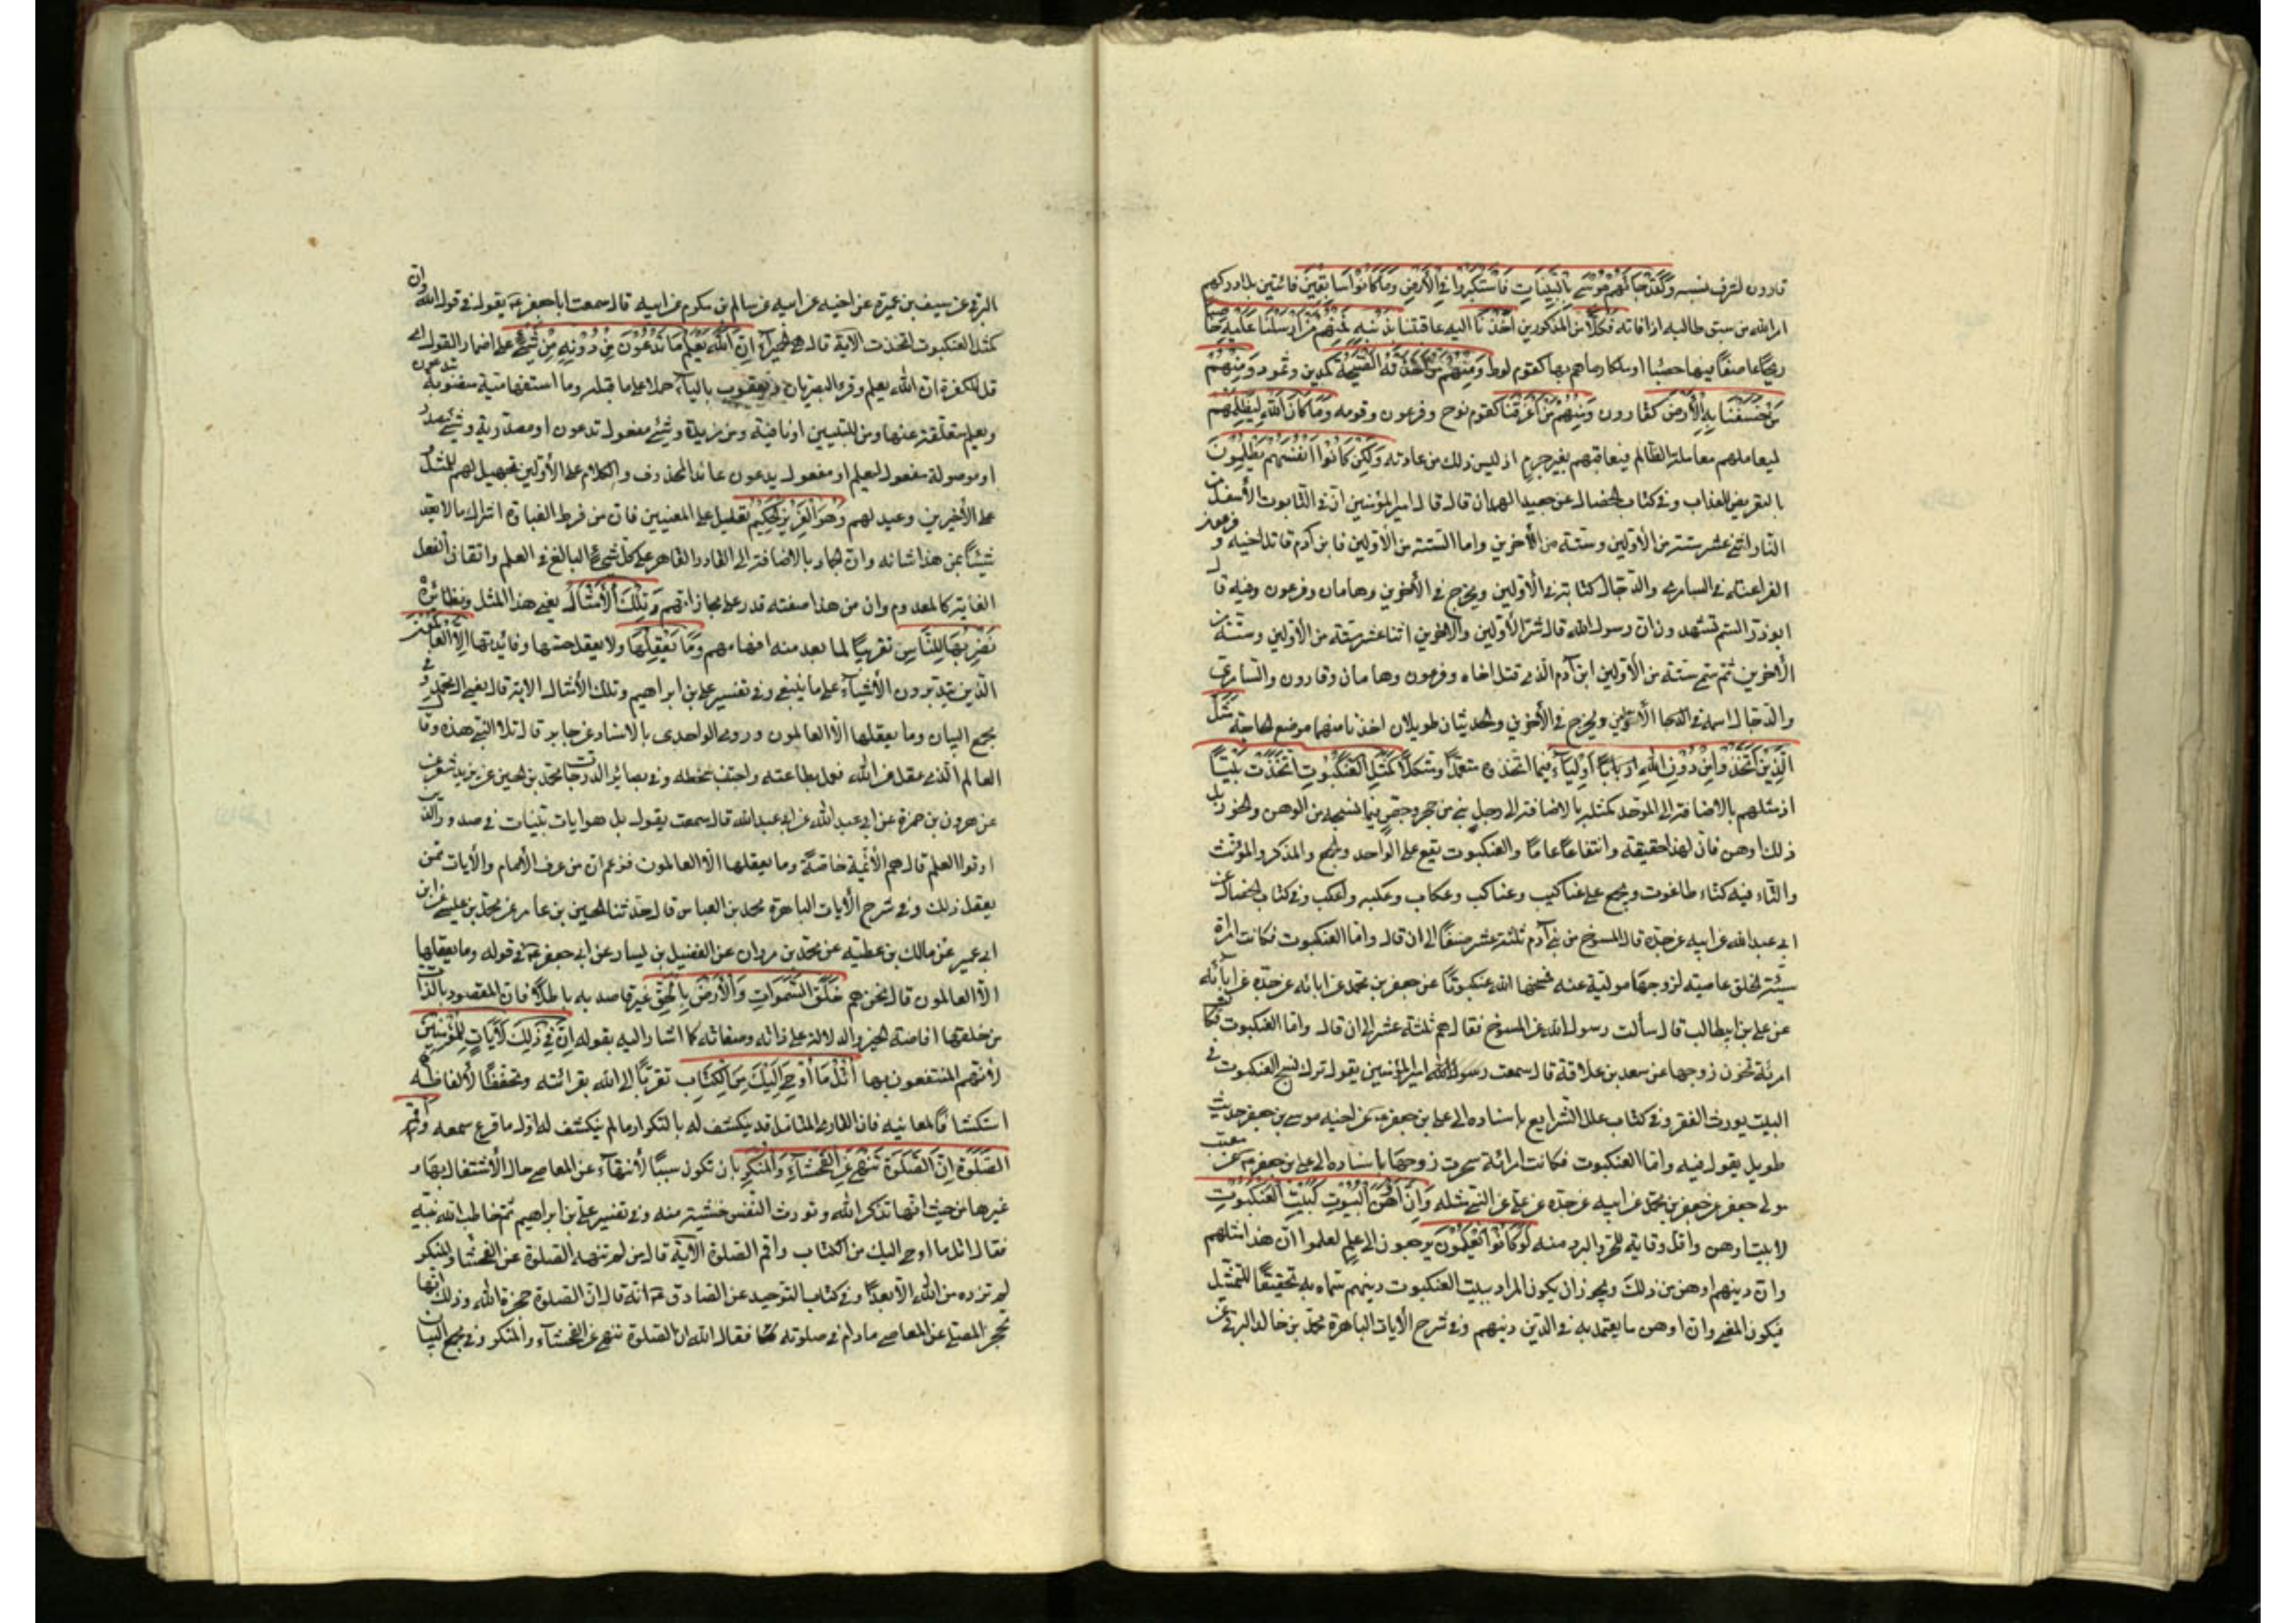 قارون لشرف نسبه ولقد جاءهم موسى بالبينات فاستكبروا في الأرض وما كانوا سابقين فائتين بل ادركهم
امر الله من سبق طالبه اذا فاته فكلا من المذكورين اخذنا اليه عاقبنا بذنبه فمنهم من ارسلنا عليه حاصبا
ريحا عاصفا فيها حصبا او ملكا رماهم بها كقوم لوط ومنهم من اخذته الصيحة كمدين وثمود ومنهم
من خسفنا به الأرض كقارون ومنهم من اغرقنا كقوم نوح وفرعون وقومه وما كان الله ليظلمهم
ليعاملهم معاملة الظالم فيعاقبهم بغير جرم اذ ليس ذلك من عادته ولكن كانوا انفسهم يظلمون
بالتعريض للعذاب وفي كتاب الخصال عن حميد الهمدان قال قال امير المؤمنين ان في التابوت الأسفل من
النار اثنى عشر ستة من الأولين وستة من الأخرين واما الستة من الأولين فابن آدم قاتل اخيه وفرعون
الفراعنة والسامرى والدجال كتابه في الأولين ويخرج في الأخرين وهامان وفرعون وفيه قال
ابو ذر الستم تشهدون ان رسول الله قال شر الأولين والاخرين اثنا عشر ستة من الأولين وستة من
الأخرين ثم سمى ستة من الأولين ابن آدم الذى قتل اخاه وفرعون وهامان وقارون والسامرى
والدجال اسمه في الأولين ويخرج في الأخرين والحديثان طويلان اخذنا منهما موضع الحاجة مثل
الذين اتخذوا من دون الله اربابا اولياء فيما اتخذوه معتمدا ومتكلا كمثل العنكبوت اتخذت بيتا
او مثلهم بالاضافة الى الموحد كمثله بالاضافة الى رجل بنى من حجر وجص فيما نسجه من الوهن والخور بل
ذلك اوهن فان لهذا حقيقة وانتفاعا عاما والعنكبوت يقع على الواحد والجمع والمذكر والمؤنث
والتاء فيه كتاء طاغوت ويجمع على عناكيب وعناكب وعكاب وعكبه واعكب وفي كتاب الخصال عن
ابى عبد الله عن ابيه عن جده قال المسوخ من بنى آدم ثلثة عشر صنفا الى ان قال واما العنكبوت فكانت امراة
سيئة الخلق عاصية لزوجها مولية عنه فمسخها الله عنكبوتا عن جعفر بن محمد عن ابائه عن جده عن ابائه
عن على بن ابيطالب قال سألت رسول الله عن المسوخ فقال هم ثلثة عشر الى ان قال واما العنكبوت فكانت
امرئة تخون زوجها عن سعد بن علاقة قال سمعت امير المؤمنين يقول ترك نسج العنكبوت في
البيت يورث الفقر وفي كتاب علل الشرايع باسناده الى على بن جعفر عن اخيه موسى بن جعفر حديث
طويل يقول فيه واما العنكبوت فكانت امرائة سحرت زوجها باسناده الى على بن جعفر عن معتب
مولى جعفر عن جعفر بن محمد عن ابيه عن جده عن على عن النبى مثله وان اوهن البيوت لبيت العنكبوت
لا بيت اوهن واقل وقاية للحر والبرد منه لو كانوا يعلمون يرجعون الى علم لعلموا ان هذا مثلهم
وان دينهم اوهن من ذلك ويجوز ان يكون المراد ببيت العنكبوت دينهم سماه به تحقيقا للتمثيل
فيكون المعنى وان اوهن ما يعتمد به في الدين دينهم وفي شرح الأيات الباهرة محمد بن خالد البرقى عن
البرقى عن سيف بن عميرة عن اخيه عن ابيه عن سالم بن مكرم عن ابيه قال سمعت ابا جعفر يقول في قول الله وان
كمثل العنكبوت اتخذت الآية قال هى الحميراء ان الله يعلم ما تدعون من دونه من شىء على اضمار القول اى
قل للكفرة ان الله يعلم وقرء البصريان ويعقوب بالياء حملا على ما قبله وما استفهامية منصوبة بتدعون
ويعلم متعلقة عنها ومن للتبيين او نافية ومن مزيدة وشىء مفعول تدعون او مصدرية وشىء مصدر
او موصولة مفعول ليعلم او مفعول يدعون عائدها المحذوف والكلام على الأولين تجهيل لهم للمثل و
على الأخرين وعيد لهم وهو العزيز الحكيم تعليل على المعنيين فان من فرط الغباوة اشراك مالا يعد
شيئا بمن هذا شانه وان الجماد بالاضافة الى القادر القاهر على كل شىء البالغ في العلم واتقان الفعل
الغاية كالمعدوم وان من هذا صفته قدر على مجازاتهم وتلك الأمثال يعنى هذا المثل ونظائره
نضربها للناس تقريبا لما بعد منه افهامهم وما يعقلها ولا يعقل حسنها وفائدتها الا العالمون
الذين يتدبرون الأشياء على ما ينبغى وفي تفسير على بن ابراهيم وتلك الأمثال الاية قال يعنى ال محمد وفي
مجمع البيان وما يعقلها الا العالمون وروى الواحدى بالاسناد عن جابر قال تلا النبى هذه وقال
العالم الذى عقل عن الله فعمل بطاعته واجتنب سخطه وفي بصائر الدرجات محمد بن الحسين عن يزيد شعر عن
عن هرون بن حمزة عن ابى عبد الله قال سمعت يقول بل هو ايات بينات في صدور الذين
اوتوا العلم قال هم الأئمة خاصة وما يعقلها الا العالمون فزعم ان من عرف الأمام والأيات ممن
يعقل ذلك وفي شرح الأيات الباهرة محمد بن العباس قال حدثنا الحسين بن عامر عن محمد بن عيسى عن ابن
ابى عمير عن مالك بن عطية عن محمد بن مروان عن الفضيل بن يسار عن ابى جعفر في قوله وما يعقلها
الا العالمون قال نحن هم خلق السموات والأرض بالحق غير قاصد به باطلا فان المقصود بالذات
من خلقها افاضة الخير والدلالة على ذاته وصفاته كما اشار اليه بقوله ان في ذلك لايات للمؤمنين
لأنهم المنتفعون بها اتل ما اوحى اليك من الكتاب تقربا الى الله بقرائته وتحفظا لألفاظه و
استكشافا لمعانيه فان القارى المتامل قد ينكشف له بالتكرار ما لم ينكشف له اول ما قرع سمعه واقم
الصلوة ان الصلوة تنهى عن الفحشاء والمنكر بان تكون سببا لأنتهاء عن المعاصى حال الأشتغال بها و
غيرها من حيث انها تذكر الله وتورث النفس خشية منه وفي تفسير على بن ابراهيم ثم خاطب الله نبيه
فقال اتل ما اوحى اليك من الكتاب واقم الصلوة الآية قال من لم تنهه الصلوة عن الفحشاء والمنكر
لم تزده من الله الا بعدا وفي كتاب التوحيد عن الصادق انه قال ان الصلوة حجزة الله وذلك انها
تحجز المصلى عن المعاصى مادام في صلوته فقال الله ان الصلوة تنهى عن الفحشاء والمنكر وفي مجمع البيان